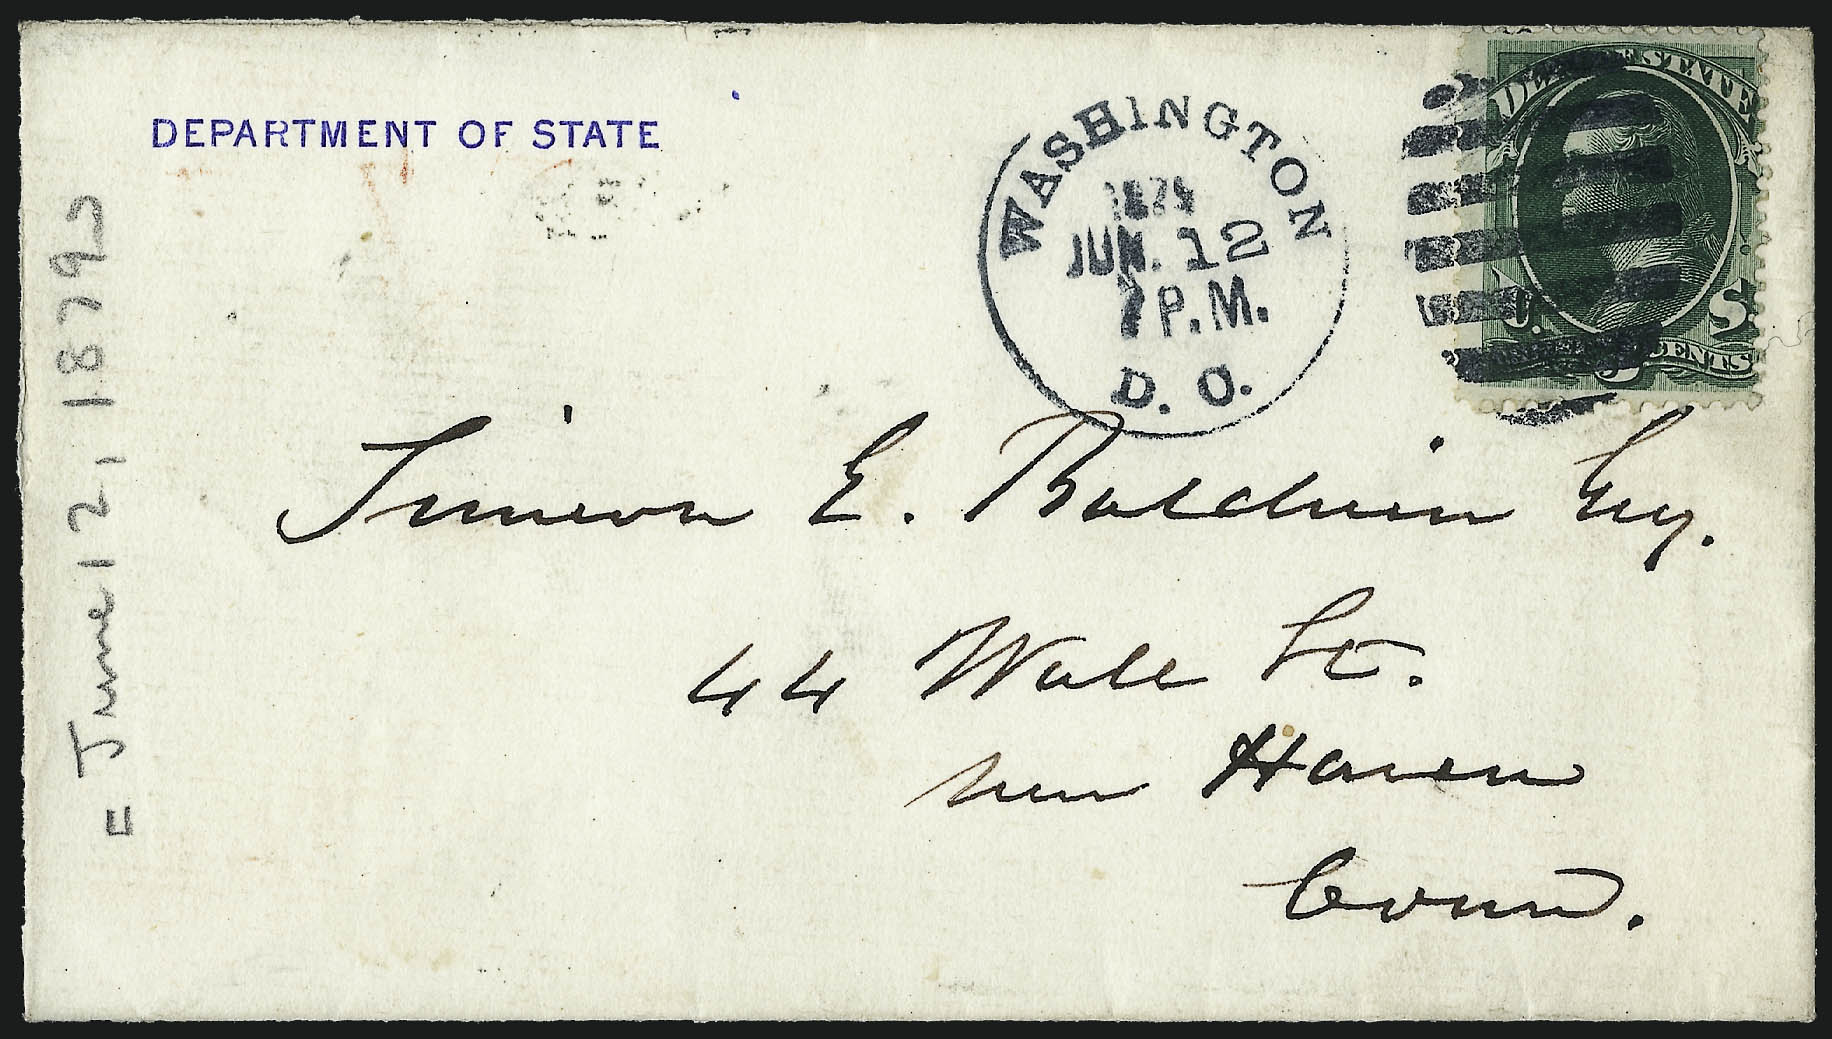 DEPARTMENT OF STATE
WASHINGTON
1879
JUN. 12
7 P.M.
D. C.
DEPT. OF STATE
U. S.
CENTS
Simeon E. Baldwin Esq.
44 Wall St.
New Haven
Conn.
= June 12, 1879